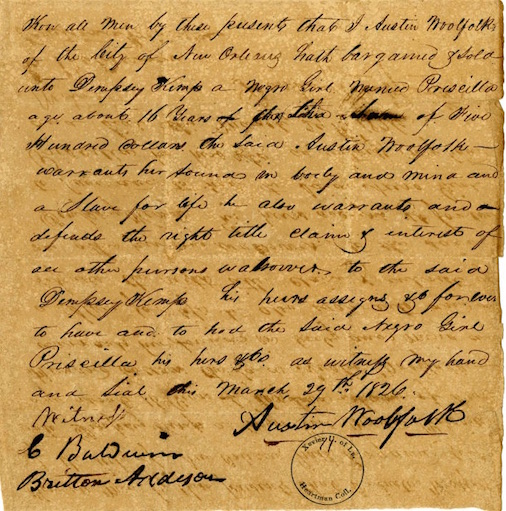 Know all Men by these presents that I Austin Woolfolk
of the City of New Orleans hath bargained & sold
unto Dempsey Kemp a Negro Girl named Priscilla
age about 16 Years of of Five
Hundred dollars the said Austin Woolfolk
warrants her sound in body and mind and
a Slave for life he also warrants and
defends the right title claim & interest of
all other persons whatsoever to the said
Dempsey Kemp his heirs assigns &c for ever
to have and to hod the said Negro Girl
Priscilla his heirs &c. as witness my hand
and Seal this March, 29th 1826.
Witness
Austin Woolfolk
C Baldwin
Britton Addison
Xavier U. of La.
Heartman Coll.